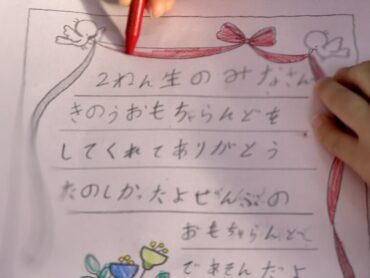 2ねん生のみなさん
きのうおもちゃらんどを
してくれてありがとう
たのしかったよぜんぶの
おもちゃらんどで
であそんだよ